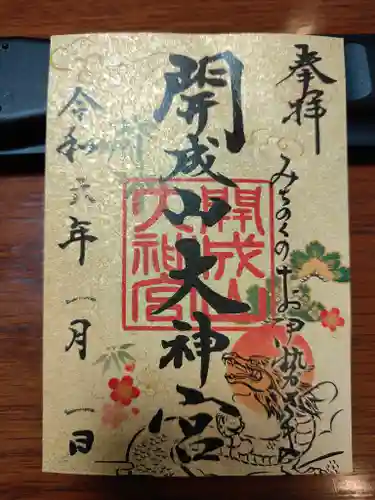 奉拝
みちのくのお伊勢さま
開成山大神宮
開成山大神宮
令和六年一月一日